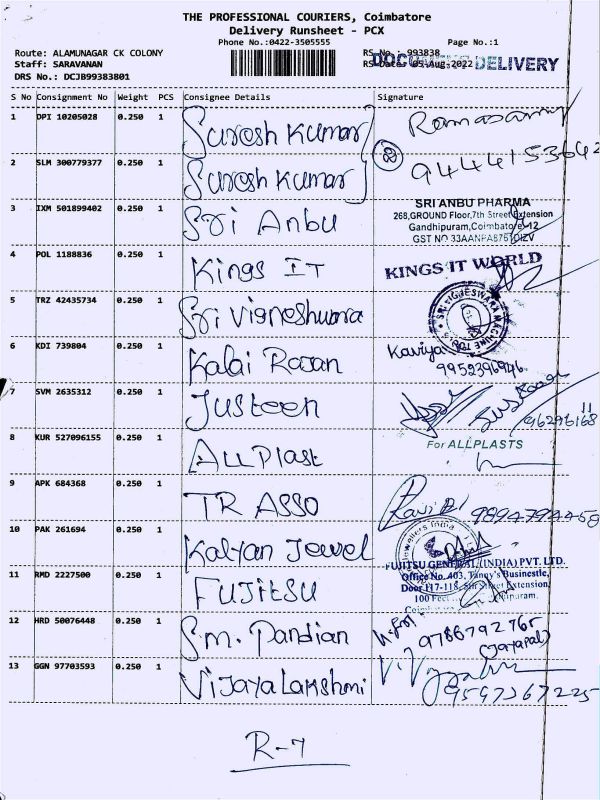 THE PROFESSIONAL COURIERS, Coimbatore
Delivery Runsheet - PCX
Phone No.:0422-3505555
Page No.:1
Route: ALAMUNAGAR CK COLONY
RS No.: 993838
Staff: SARAVANAN
RS Date: 05-Aug-2022
DELIVERY
DRS No.: DCJB99383801
S No Consignment No Weight PCS Consignee Details Signature
1 DPI 10205028 0.250 1 Suresh Kumar Ramasamy
2 SLM 300779377 0.250 1 Suresh Kumar 2 9444153642
3 IXM 501899402 0.250 1 Sri Anbu
SRI ANBU PHARMA
268,GROUND Floor,7th Street Extension
Gandhipuram,Coimbatore-12
GST NO
4 POL 1188836 0.250 1 Kings IT KINGS IT WORLD
5 TRZ 42435734 0.250 1 Sri Vigneshwara
6 KDI 739804 0.250 1 Kalai Rajan Kaviya
9952396946
7 SVM 2635312 0.250 1 Justeen
8 KUR 527096155 0.250 1 ALL Plast For ALLPLASTS
9 APK 684368 0.250 1 TR ASSO
10 PAK 261694 0.250 1 Kalyan Jewel
11 RMD 2227500 0.250 1 FUJITSU
FUJITSU GENERAL (INDIA) PVT. LTD.
Office No. 403,
Door 117-118, Extension,
100 Feet
12 HRD 50076448 0.250 1 S.M. Pandian 9786792765
(Jayapal)
13 GGN 97703593 0.250 1 Vijaya Lakshmi
9597367225
R-7